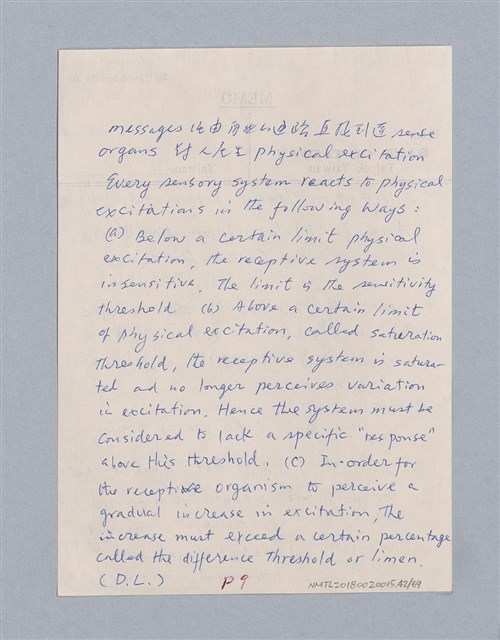 messages 由 的 通路 直接到達 sense
organs physical excitation
Every sensory system reacts to physical
excitations in the following ways:
(a) Below a certain limit physical
excitation, the receptive system is
insensitive. The limit is the sensitivity
threshold (b) Above a certain limit
of physical excitation, called saturation
threshold, the receptive system is satura-
ted ad no longer perceives variation
in excitation. Hence the system must be
considered to lack a specific "response"
above this threshold. (C) In order for
the receptive organism to perceive a
gradual increase in excitation, the
increase must exceed a certain percentage
called the difference threshold or limen.
(D.L.) P9
NMTL20180020015.42/69
MEMO